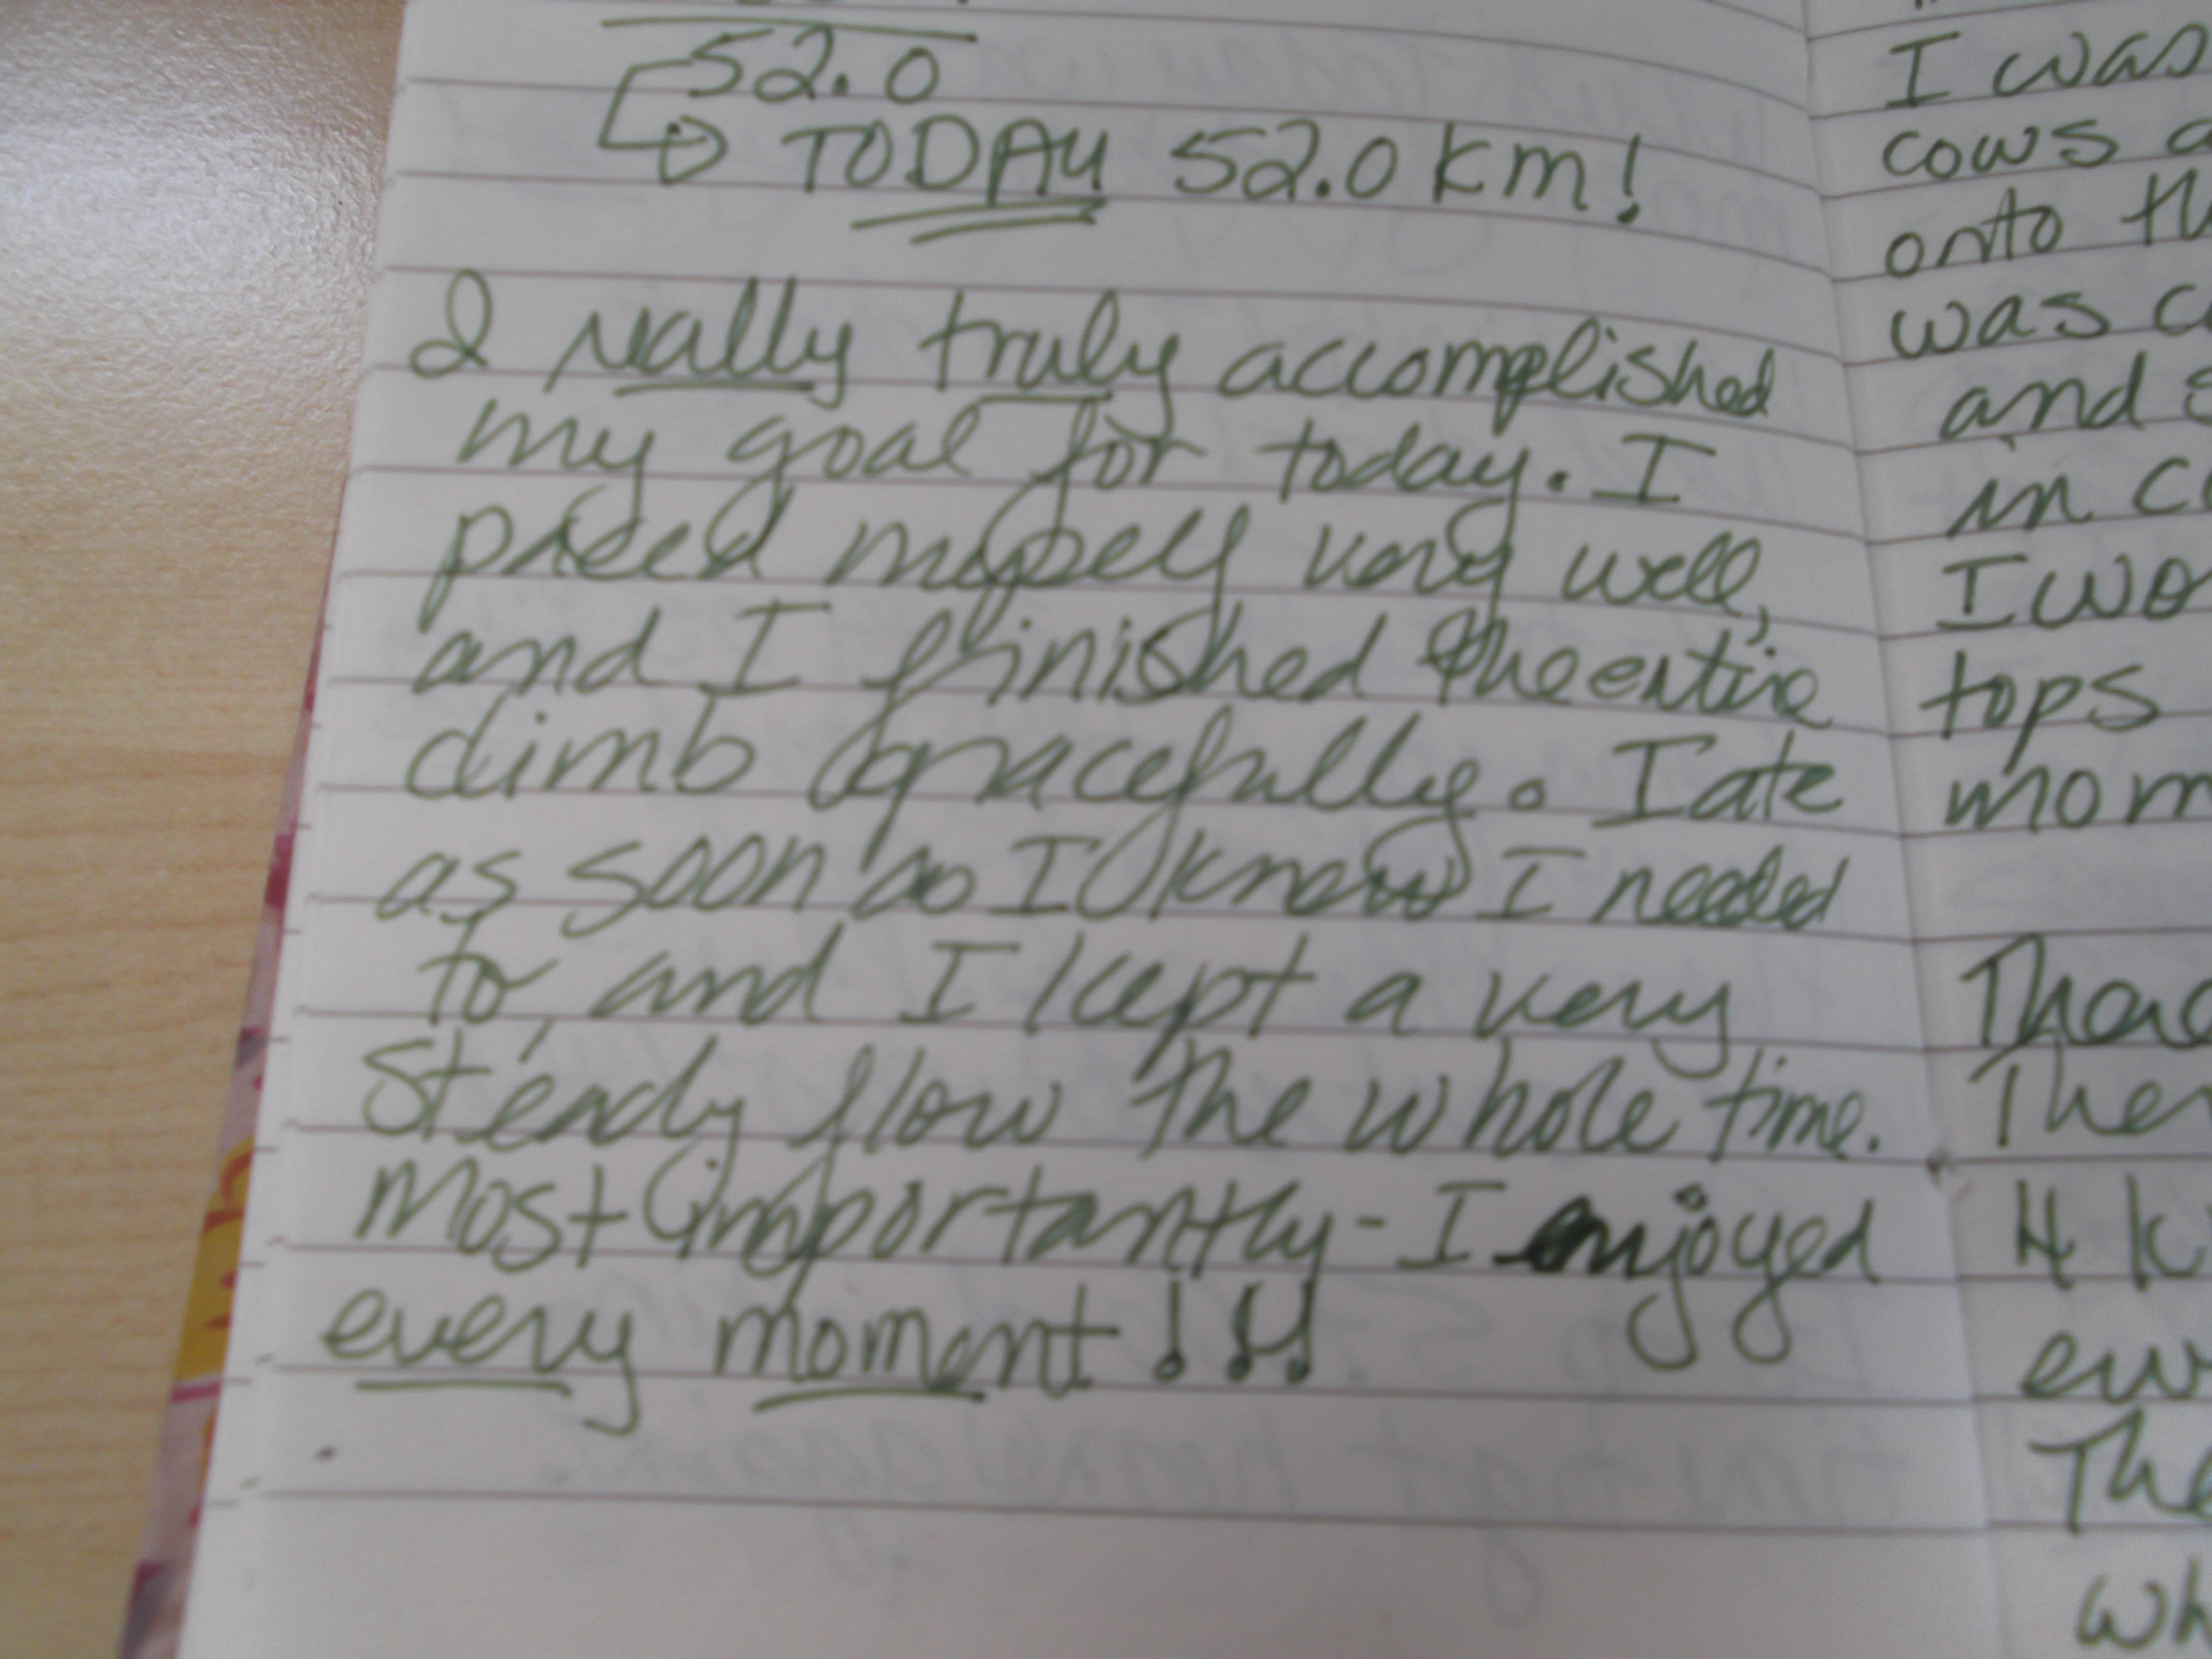 52.0
→ TODAY 52.0 km!
I really truly accomplished
my goal for today. I
paced myself very well,
and I finished the entire
climb gracefully. I ate
as soon as I knew I needed
to, and I kept a very
steady flow the whole time.
Most importantly - I enjoyed
every moment!!!
I was
cows
onto
was
and
in
I
tops